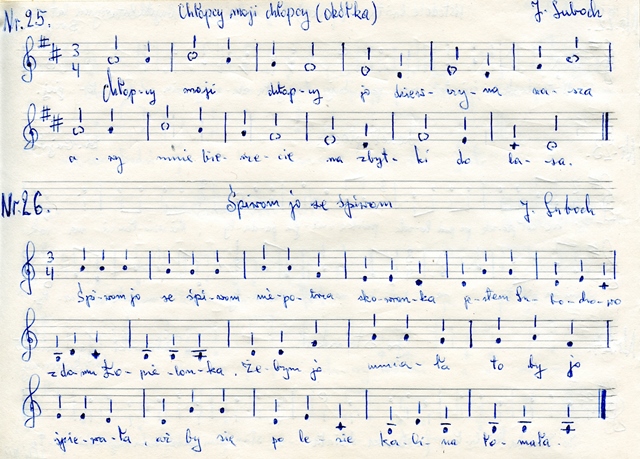 Nr. 25. Chłopcy moji chłopcy (okótka) J. Suboch
3 4
Chłop-cy moji chłop-cy jo dziew-czy-na wa-sza
a-zy mnie bie-rze-cie na zbyt-ki do la-sa.
Nr. 26. Śpiwom jo se śpiwom J. Suboch
3 4
Śpi-wom jo se śpi-wom nie-po-tna sko-wron-ka je-stem Su-bo-cho-wo
z do-mu Ko-pie-lon-ka. Że-bym jo mnia-ła to by jo
śpie-wa-ła, aż by się po le-sie ka-li-na ło-mała.